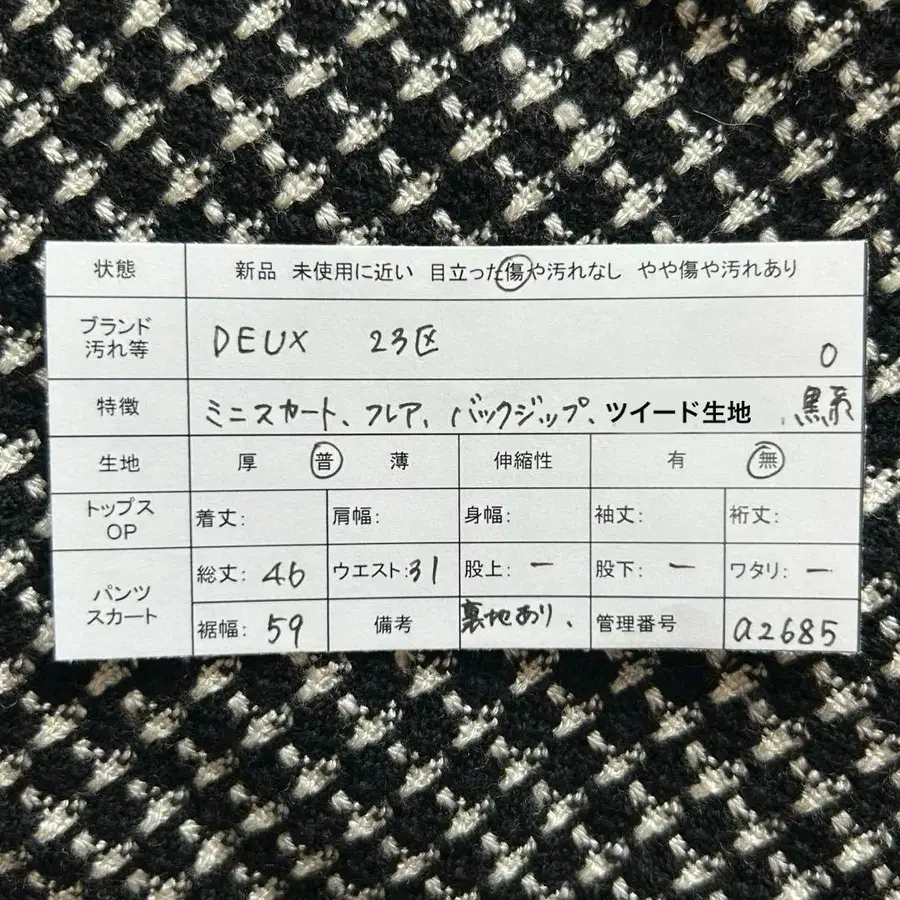 状態 新品 未使用に近い 目立った傷や汚れなし やや傷や汚れあり
ブランド
汚れ等 DEUX 23区 0
特徴 ミニスカート、フレア、バックジップ、ツイード生地 黒系
生地 厚 普 薄 伸縮性 有 無
トップス
OP 着丈: 肩幅: 身幅: 袖丈: 裄丈:
パンツ
スカート 総丈: 46 ウエスト:31 股上: ー 股下: ー ワタリ: ー
裾幅: 59 備考 裏地あり、 管理番号 a2685